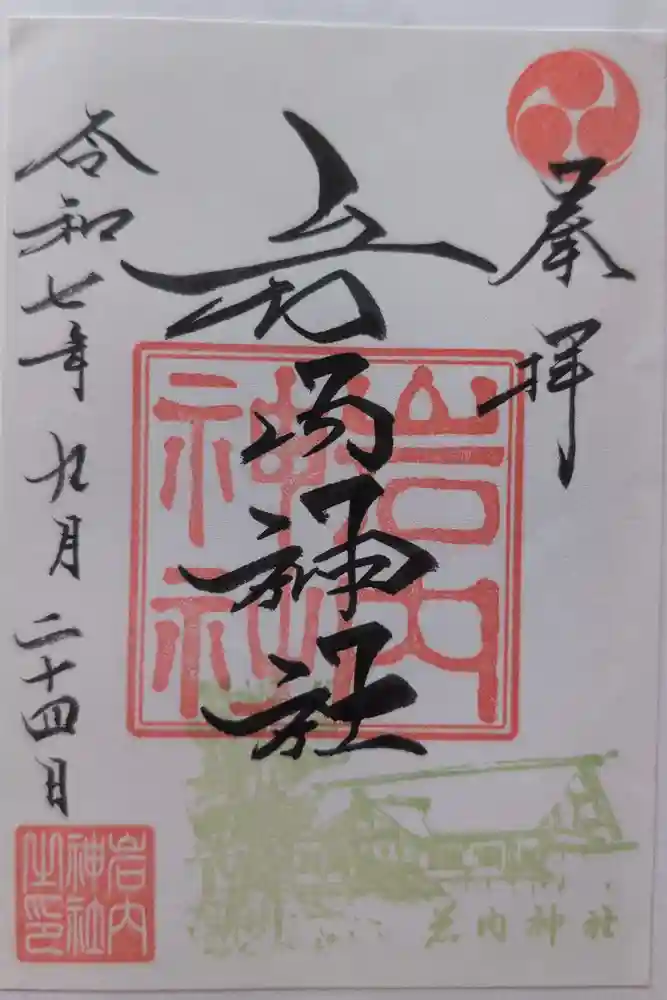 奉拝
岩内神社
岩内
神社
令和七年九月二十四日
岩内
神社
之印
岩内神社